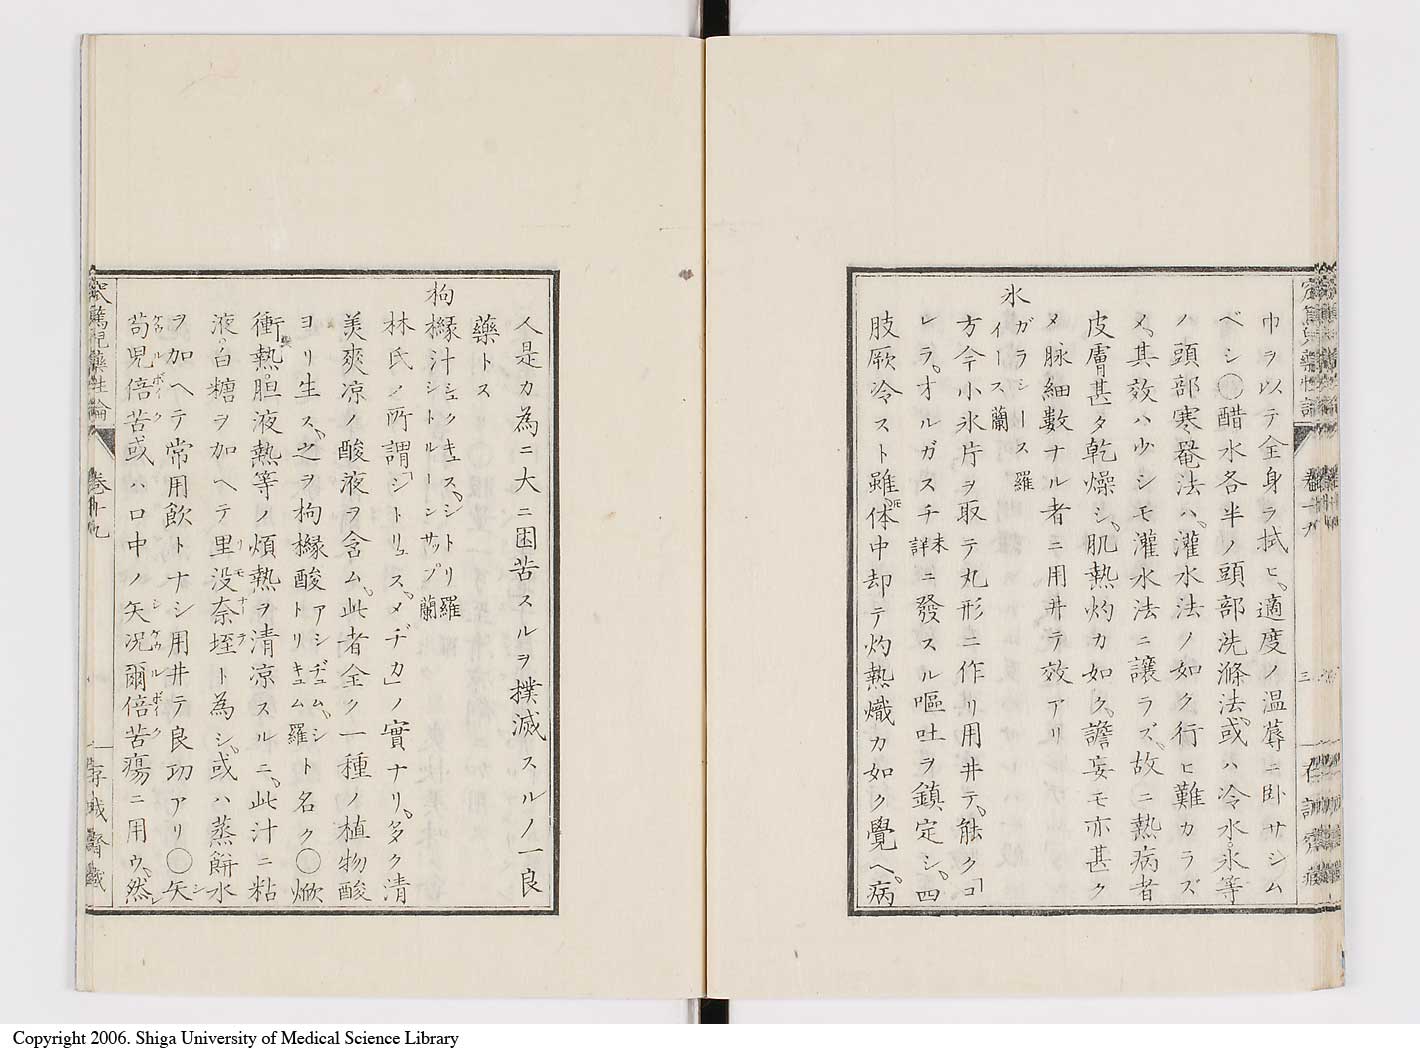 巾ヲ以テ全身ヲ拭ヒ、適度ノ温蓐ニ臥サシム
ベシ◯醋水各半ノ頭部洗滌法、或ハ冷水、氷等
ノ頭部寒罨法ハ、灌水法ノ如ク行ヒ難カラズ
メ、其效ハ少シモ灌水法ニ讓ラズ、故ニ熱病者
皮膚甚タ乾燥シ、肌熱灼カ如ク、譫妄モ亦甚ク
メ脉細數ナル者ニ用井テ效アリ
氷 ガラシース羅 イース蘭
方今小氷片ヲ取テ丸形ニ作リ用井テ、能ク「コ
レラ、オルガスチ未詳ニ發スル嘔吐ヲ鎮定シ、四
肢厥冷スト雖𪜈体中却テ灼熱熾カ如ク覺ヘ、病
人是カ為ニ大ニ困苦スルヲ撲滅スルノ一良
藥トス
枸櫞汁 シュクキュス、シトリ羅 シトルーンサップ蘭
林氏ノ所謂「シトリュス、メヂカ」ノ實ナリ、多ク清
美爽凉ノ酸液ヲ含ム、此者全ク一種ノ植物酸
ヨリ生ス、之ヲ枸櫞酸アシヂュム、シトリキュム羅ト名ク◯焮
衝熱、胆液熱等ノ煩熱ヲ清凉スルニ、此汁ニ粘
液、白糖ヲ加ヘテ里没奈垤リモナーデト為シ、或ハ蒸餅水
ヲ加ヘテ常用飲トナシ用井テ良功アリ◯矢シ
苟児倍苦ケウルボイク或ハ口中ノ矢况爾倍苦シケウルボイク瘍ニ用ウ、然レ
窊篤児藥性論 卷十九